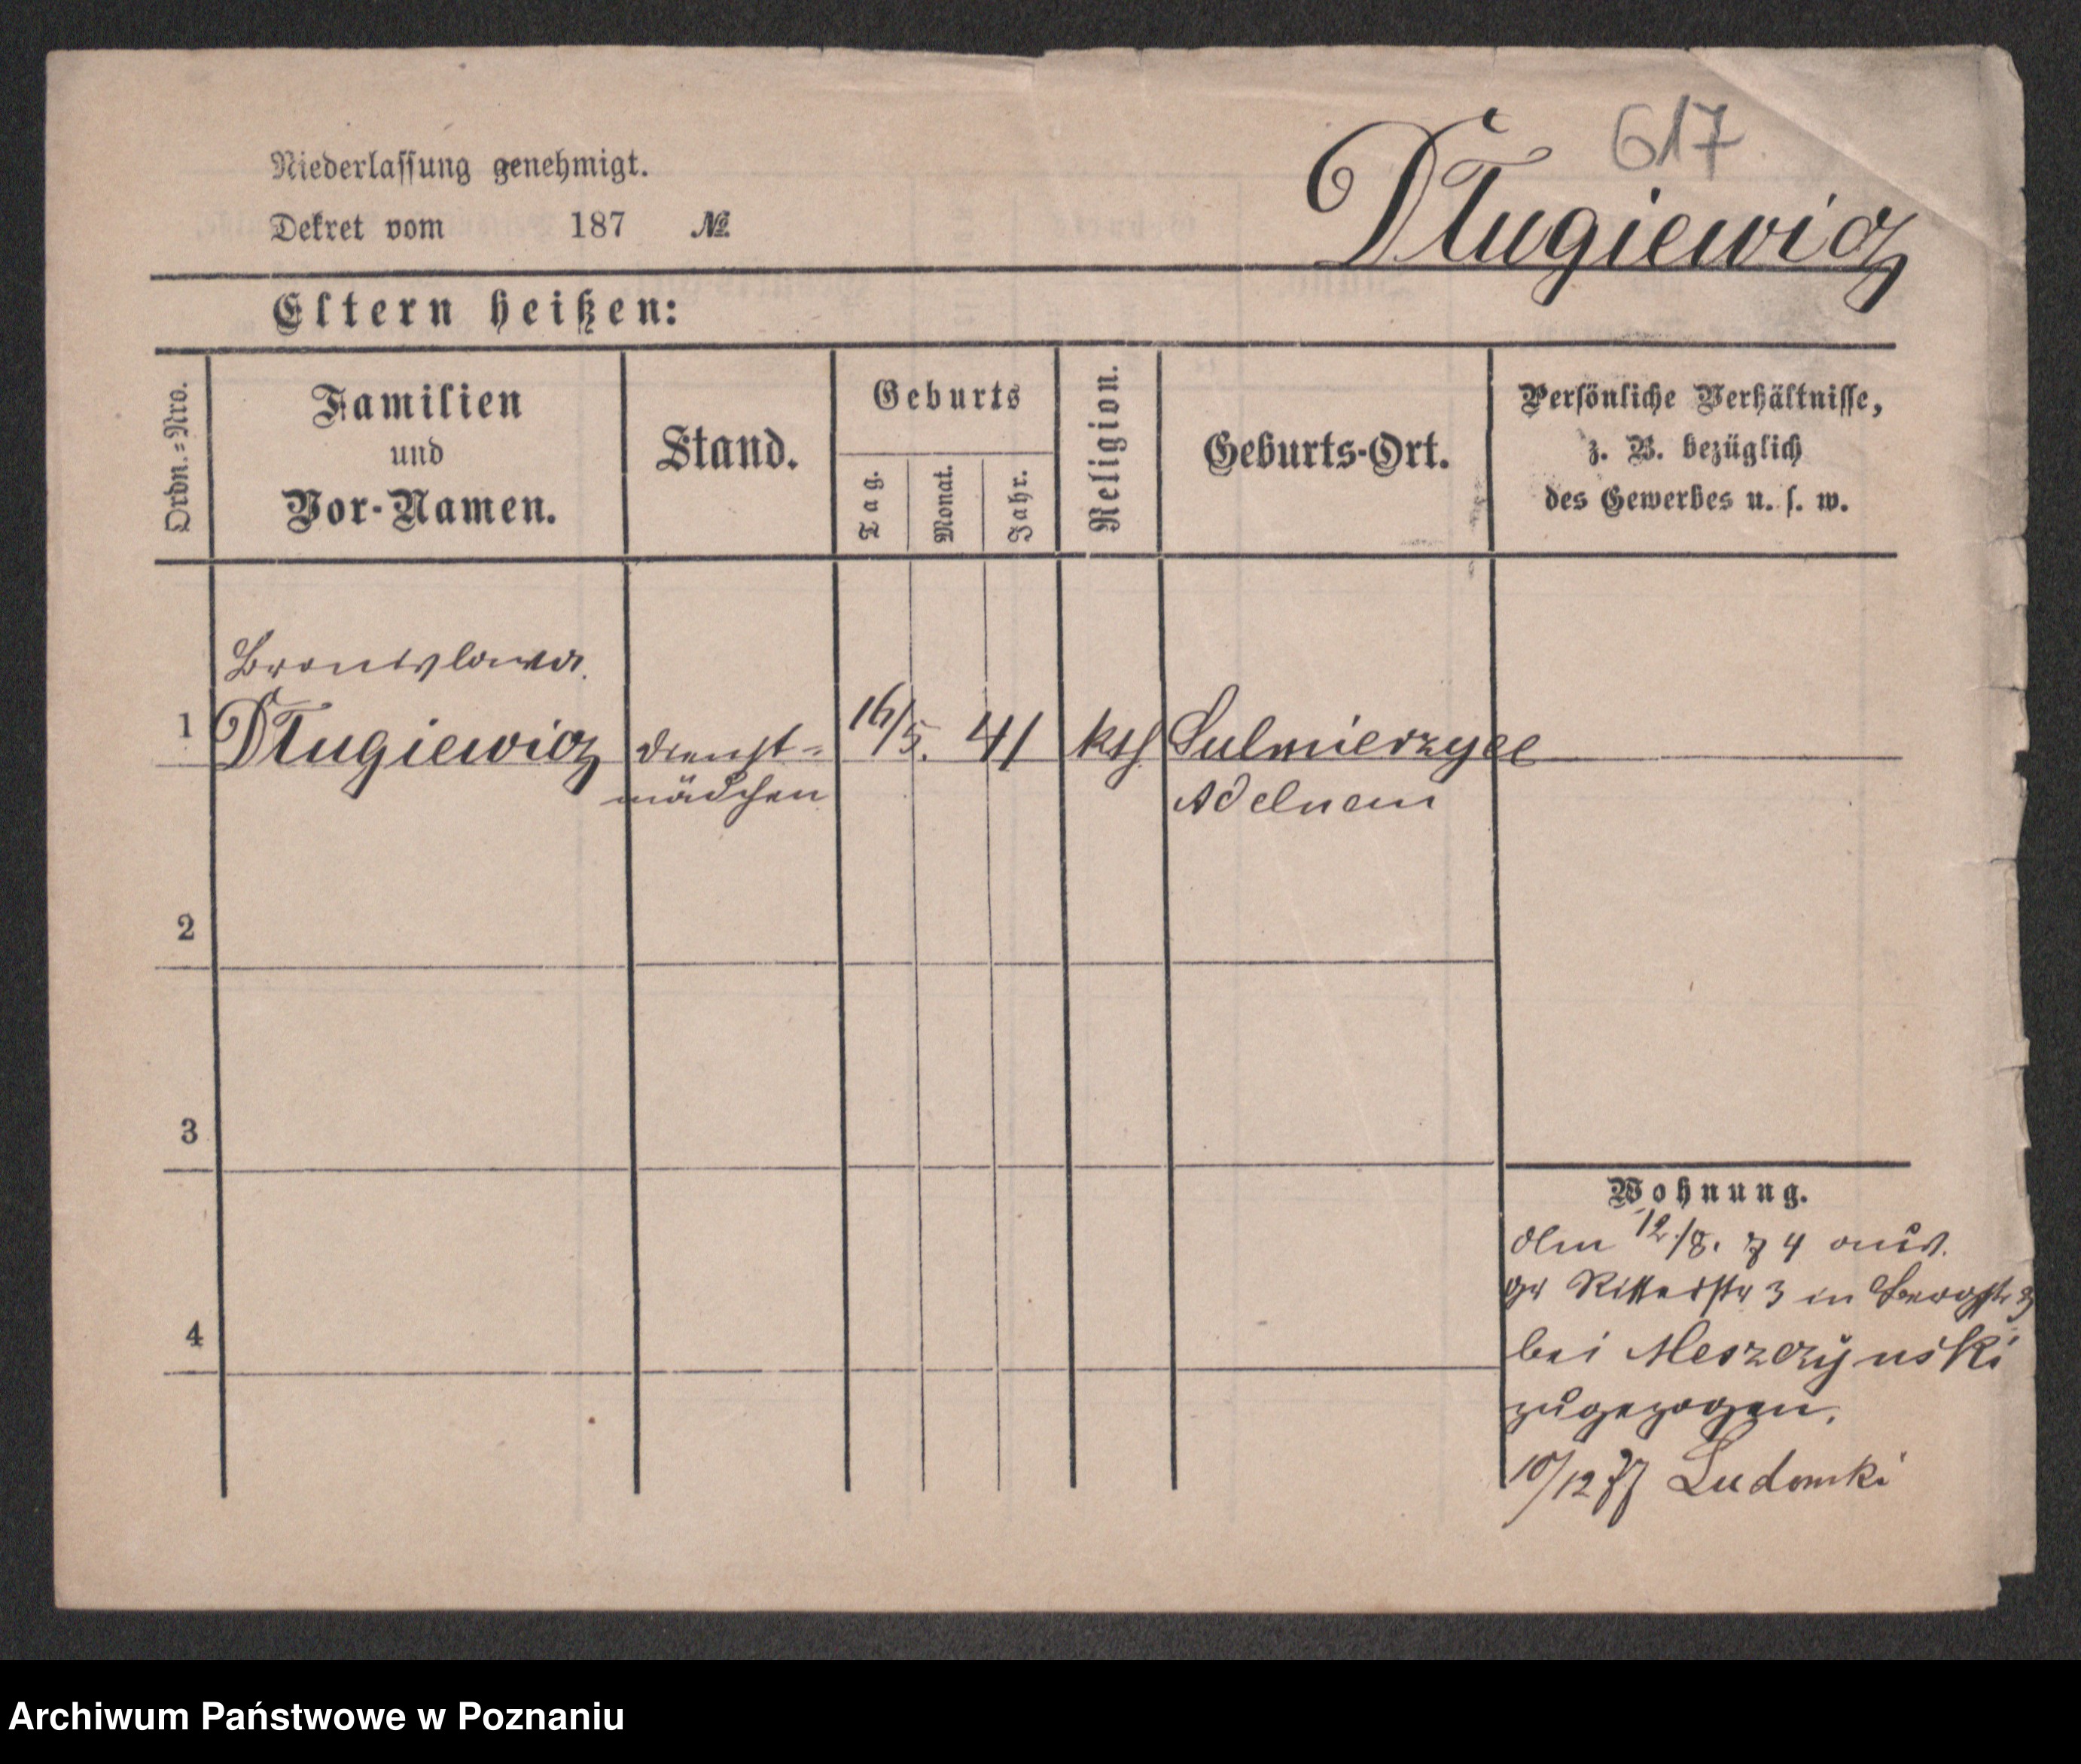 617
Niederlassung genehmigt.
Dekret vom 187 №
Długiewicz
Eltern heißen:
Ordn.=Nro.
Familien
und
Vor-Namen.
Stand.
Geburts
Tag.
Monat.
Jahr.
Religion.
Geburts-Ort.
Persönliche Verhältnisse,
z. B. bezüglich
des Gewerbes u. s. w.
Bronislawa
1 Długiewicz Dienst= 16/5. 41 kth Sulmierzyce
mädchen Adelnau
2
3
4
Wohnung.
12./8. 74 aus
gr Ritterstr 3 in Bergstr
bei Meszczyński
zugezogen.
10/12 77 Ludomki
Archiwum Państwowe w Poznaniu